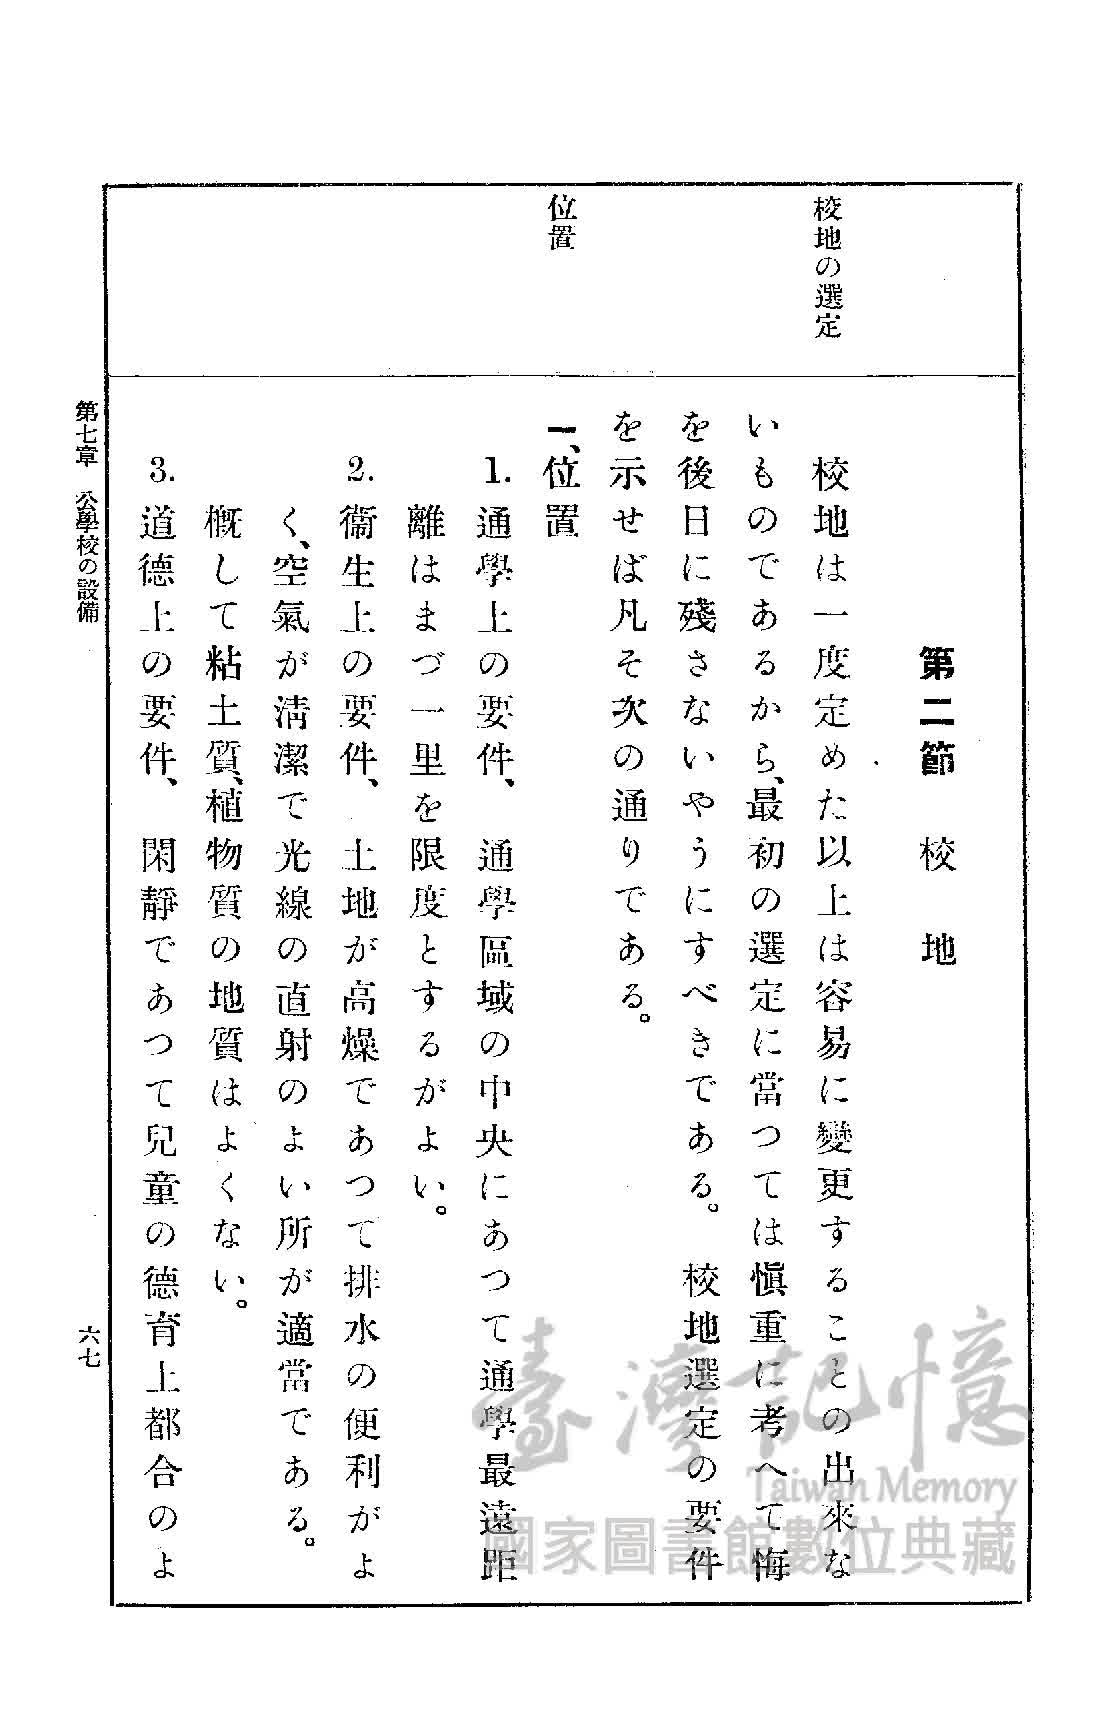 第二節　校地
校地の選定
校地は一度定めた以上は容易に變更することの出來な
いものであるから、最初の選定に當つては愼重に考へて悔
を後日に殘さないやうにすべきである。　校地選定の要件
を示せば凡そ次の通りである。
位置
一、位置
1. 通學上の要件、　通學區域の中央にあつて通學最遠距
離はまづ一里を限度とするがよい。
2. 衞生上の要件、　土地が高燥であつて排水の便利がよ
く、空氣が淸潔で光線の直射のよい所が適當である。
槪して粘土質、植物質の地質はよくない。
3. 道德上の要件、　閑靜であつて兒童の德育上都合のよ
第七章　公學校の設備
六七
臺灣記憶
Taiwan Memory
國家圖書館數位典藏